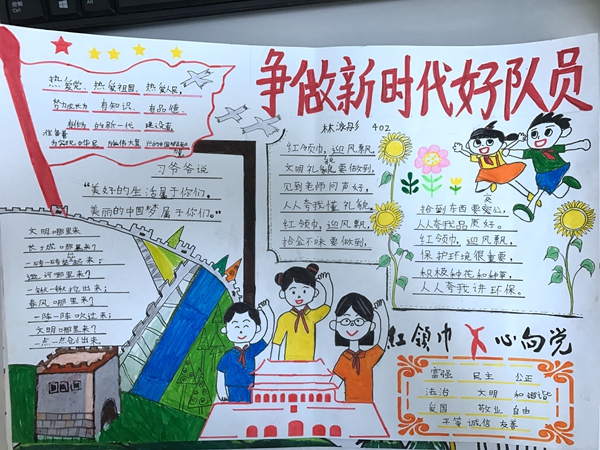 争做新时代好队员
402
热爱党、热爱祖国、热爱人民,
努力成长为 有知识、有品德、
的新一代 建设者
准备着
习爷爷说
“美好的生活属于你们。
美丽的中国梦属于你们。”
文明哪里来
长大成哪里来?
一砖一砖垒起来;
运河哪里来?
一锹一锹挖出来;
春风哪里来?
一阵一阵吹过来;
文明哪里来?
一点一点创出来。
红领巾,迎风飘,
文明礼貌要做到,
见到老师问声好,
人人夸我懂礼貌,
红领巾,迎风飘,
拾金不昧要做到,
拾到东西要交公,
人人夸我品质好。
红领巾,迎风飘,
保护环境很重要,
积极种花和种草,
人人夸我讲环保。
红领巾 心向党
富强 民主 公正
法治 文明 和谐
爱国 敬业 自由
平等 诚信 友善